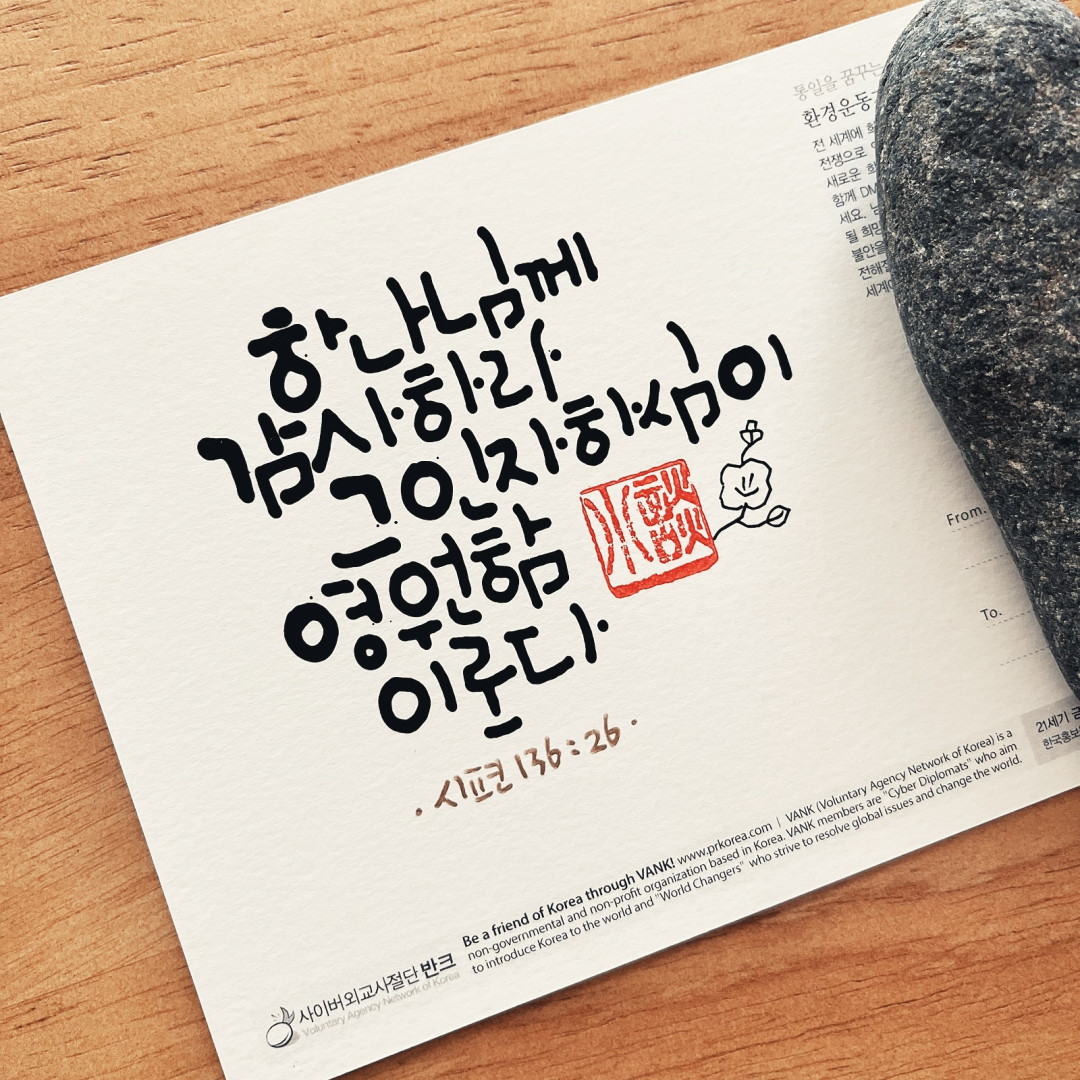 하나님께
감사하라
그 인자하심이
영원함
이로다
· 시편 136 : 26 ·
통일을 꿈꾸는
환경운동
전 세계에
전쟁으로
새로운
함께 DM
세요.
될 희망
불안을
전해
세계에
From.
To.
21세기 금
한국홍보
Be a friend of Korea through VANK! www.prkorea.com | VANK (Voluntary Agency Network of Korea) is a
non-governmental and non-profit organization based in Korea. VANK members are "Cyber Diplomats" who aim
to introduce Korea to the world and "World Changers" who strive to resolve global issues and change the world.
사이버외교사절단 반크
Voluntary Agency Network of Korea